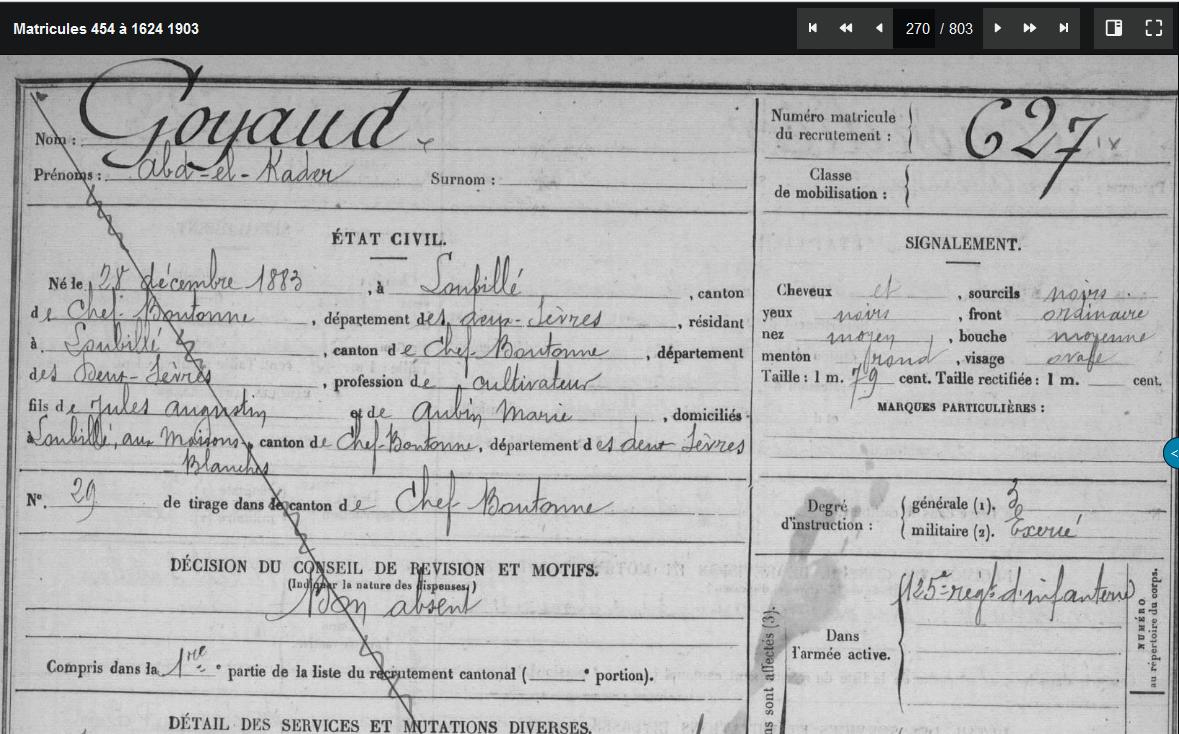 Matricules 454 à 1624 1903
270 / 803
Nom : Goyaud
Prénoms : Abd-el-Kader Surnom :
Numéro matricule du recrutement : 627
Classe de mobilisation :
ÉTAT CIVIL.
Né le 28 décembre 1883, à Loubillé, canton
de Chef-Boutonne, département des deux-Sèvres, résidant
à Loubillé, canton de Chef-Boutonne, département
des Deux-Sèvres, profession de cultivateur
fils de Jules Augustin et de Aubin Marie, domiciliés
à Loubillé, aux Maisons-Blanches, canton de Chef-Boutonne, département des deux Sèvres
N° 29 de tirage dans le canton de Chef-Boutonne
SIGNALEMENT.
Cheveux et, sourcils noirs
yeux noirs, front ordinaire
nez moyen, bouche moyenne
menton rond, visage ovale
Taille : 1 m. 79 cent. Taille rectifiée : 1 m. cent.
MARQUES PARTICULIÈRES :
Degré d'instruction : générale (1). 3
militaire (2). Exercé
DÉCISION DU CONSEIL DE REVISION ET MOTIFS.
(Indiquer la nature des dispenses.)
Bon absent
Compris dans la 1re partie de la liste du recrutement cantonal ( e portion).
DÉTAIL DES SERVICES ET MUTATIONS DIVERSES.
sont affectés (3).
Dans l'armée active.
125e regt d'infanterie
NUMÉRO
au répertoire du corps.